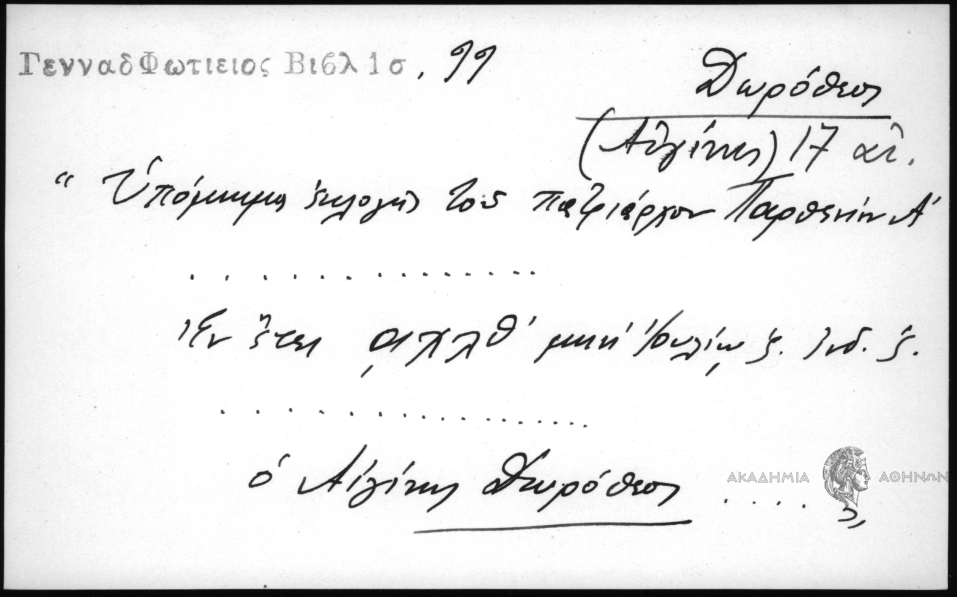 Γενναδ Φωτιειος Βιβλ 1 σ. 99
Δωρόθεος
(Αἰγίνης) 17 αἰ.
“ Ὑπόμνημα ἐκλογῆς τοῦ πατριάρχου Παρθενίου Α'
. . . . . . . . . . . . . . .
Ἐν ἔτει ͵αχλθ' μηνὶ Ἰουλίῳ ζ. Ἰνδ. ζ.
. . . . . . . . . . . . . . . . .
ὁ Αἰγίνης Δωρόθεος . . . . . „
ΑΚΑΔΗΜΙΑ ΑΘΗΝΩΝ